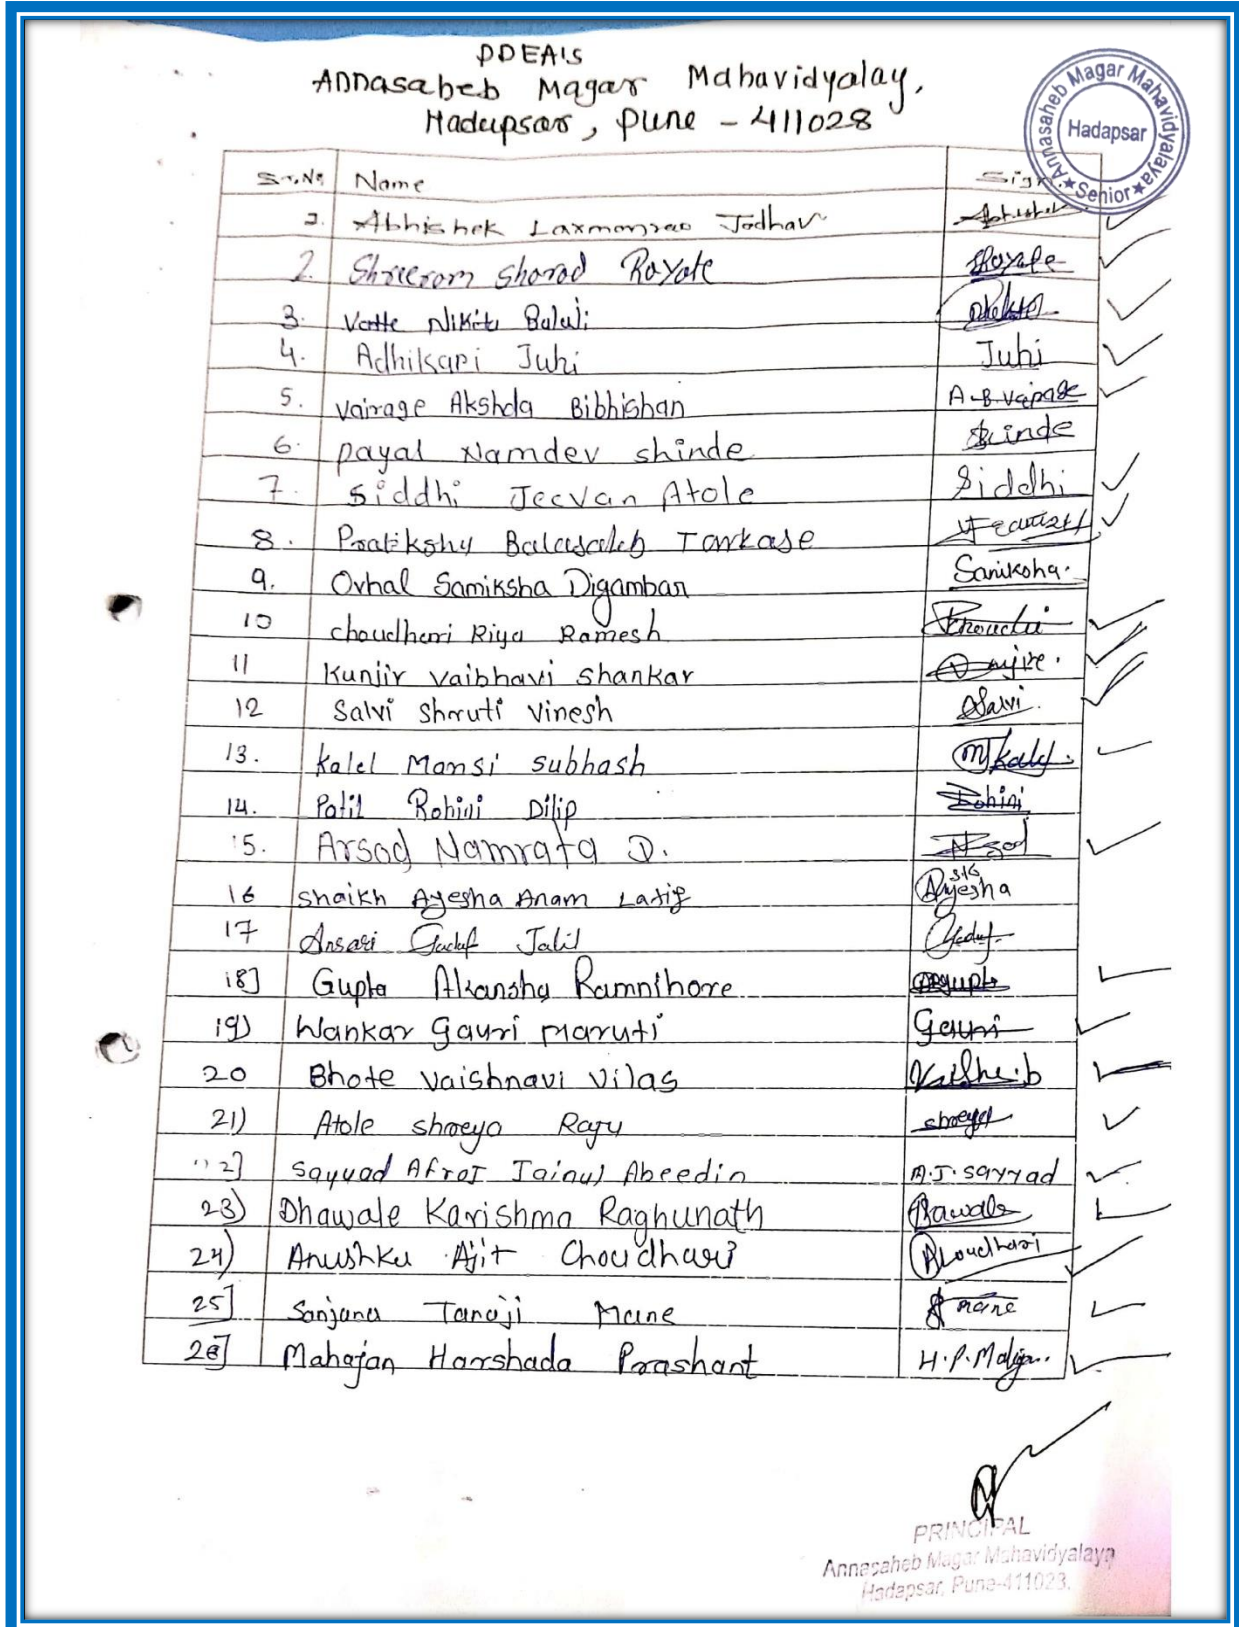 PDEA'S
Annasaheb Magar Mahavidyalay,
Hadapsar, Pune - 411028
Annasaheb Magar Mahavidyalaya
Hadapsar
★ Senior ★
Sr.No Name Sign.
1. Abhishek Laxmanrao Jadhav Abhishek
2. Shreeram Sharad Rayate Rayate
3. Vatte Nikita Balaji
4. Adhikari Juhi Juhi
5. Vairage Akshda Bibhishan A.B.Vairage
6. Payal Namdev Shinde Shinde
7. Siddhi Jeevan Atole Siddhi
8. Pratiksha Balasaheb Tarkase
9. Ovhal Samiksha Digambar Samiksha.
10 Choudhari Riya Ramesh
11 Kunjir Vaibhavi Shankar
12 Salvi Shruti Vinesh Salvi.
13. Kalel Mansi Subhash
14. Patil Rohini Dilip Rohini
15. Arsod Namrata D.
16 Shaikh Ayesha Anam Latif Ayesha
17 Ansari Jalil
18] Gupta Akansha Ramnihore Gupta
19) Wankar Gauri Maruti Gauri
20 Bhote Vaishnavi Vilas
21) Atole Shreya Raju Shreya
22] Sayyad Afroj Jainul Abeedin A.J.Sayyad
23) Dhawale Karishma Raghunath
24) Anushka Ajit Choudhari
25] Sanjana Tanaji Mane Mane
26] Mahajan Harshada Prashant H.P.Mahajan.
PRINCIPAL
Annasaheb Magar Mahavidyalaya
Hadapsar, Pune-411028.